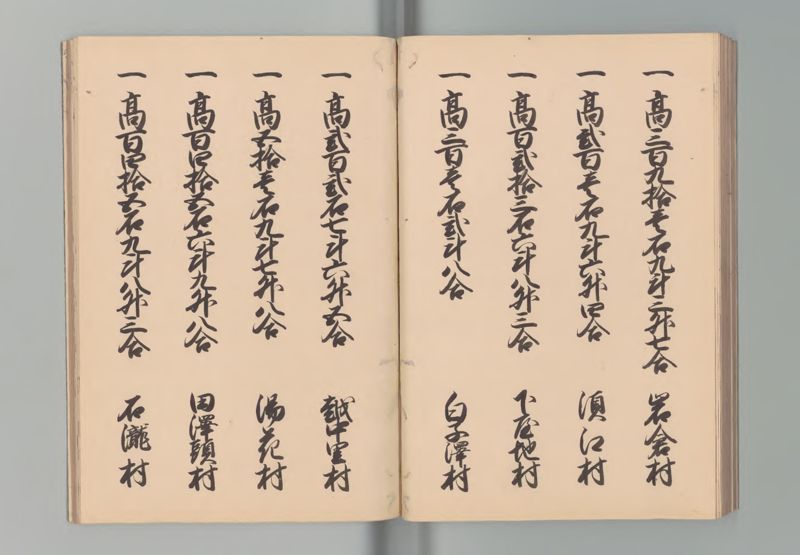 一 高三百九拾壱石九斗三升七合 岩倉村
一 高弐百壱石九斗六升四合 須江村
一 高百弐拾三石六斗八升三合 下屋地村
一 高三百壱石弐斗八合 白子澤村
一 高弐百弐石七斗六升五合 越中里村
一 高五拾壱石九斗七升八合 湯花村
一 高百四拾五石六斗九升八合 田澤頭村
一 高百四拾五石九斗八升三合 石瀧村